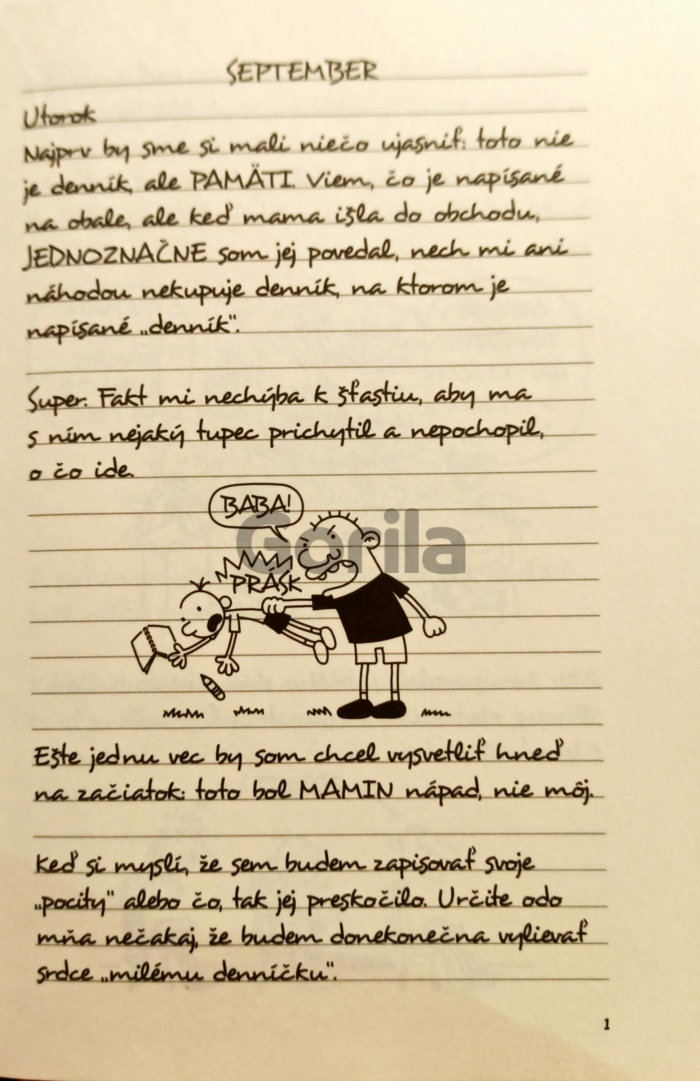 SEPTEMBER
Utorok
Najprv by sme si mali niečo ujasniť: toto nie
je denník, ale PAMÄTI. Viem, čo je napísané
na obale, ale keď mama išla do obchodu,
JEDNOZNAČNE som jej povedal, nech mi ani
náhodou nekupuje denník, na ktorom je
napísané „denník“.
Super. Fakt mi nechýba k šťastiu, aby ma
s ním nejaký tupec prichytil a nepochopil,
o čo ide.
BABA!
Gorila
PRÁSK
Ešte jednu vec by som chcel vysvetliť hneď
na začiatok: toto bol MAMIN nápad, nie môj.
Keď si myslí, že sem budem zapisovať svoje
„pocity“ alebo čo, tak jej preskočilo. Určite odo
mňa nečakaj, že budem donekonečna vylievať
srdce „milému denníčku“.
1